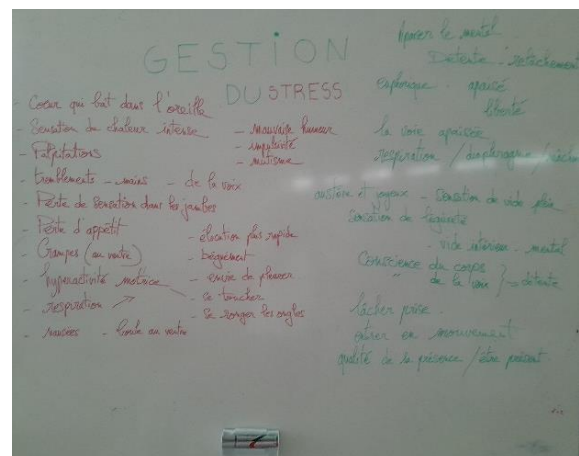 GESTION
DU STRESS
- Coeur qui bat dans l'oreille
- Sensation de chaleur intense
- Palpitations
- tremblements - mains - de la voix
- Perte de sensation dans les jambes
- Perte d'appétit
- Crampes (au ventre)
- hyperactivité motrice
- respiration
- nausées - boule au ventre
- mauvaise humeur
- impulsivité
- mutisme
- élocution plus rapide
- bégaiement
- envie de pleurer
- se toucher
- se ronger les ongles
Apaiser le mental
Détente - relâchement
euphorique - apaisé
liberté
la voix apaisée
respiration / diaphragme /
austère et joyeux - Sensation de vide plein
Sensation de légèreté
- vide intérieur - mental
Conscience du corps
" de la voix } → détente
lâcher prise
entrer en mouvement
qualité de la présence / être présent